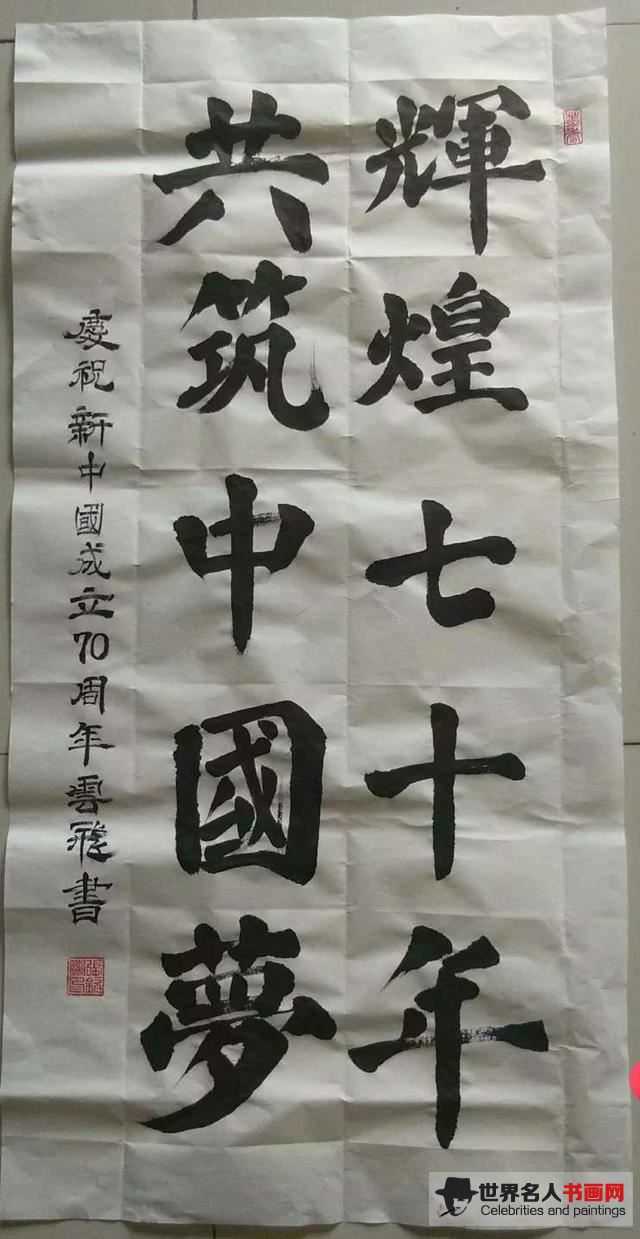 輝煌七十年
共筑中國夢
慶祝新中國成立70周年雲飛書
世界名人书画网
Celebrities and paintings